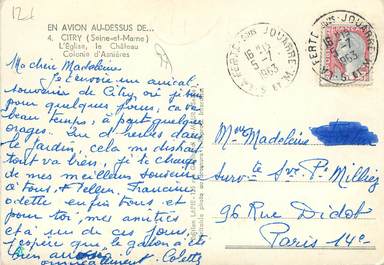 12t
EN AVION AU-DESSUS DE...
4. CITRY (Seine-et-Marne)
L'Église, le Château
Colonie d'Asnières
Ma chère Madeleine
Je t'envoie un amical
souvenir de Citry où je suis
pour quelques jours, ça va
beau temps, à part quelques
orages. Un d'herbes dans
le jardin, cela me distrait
tout va bien, je te charge
de mes meilleurs souvenirs
à tous, Hellen, Francine
odette enfin tous, et
pour toi, mes amitiés
et à un de ces jours,
j'espère que le garçon a été
bien
amicalement. Colette
LA FERTE-sous-JOUARRE
16 H
5-7
1963
S. ET M.
LA FERTE-sous-JOUARRE
16 H
5-7
1963
S. ET M.
Mme Madeleine
Surv te Sve P. Milliez
96 Rue Didot
Paris 14e